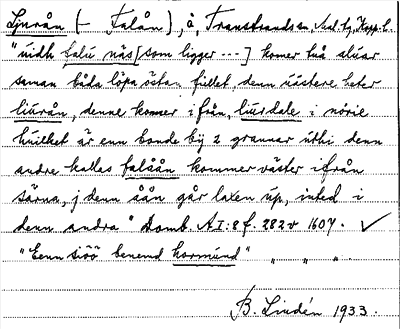 Ljurån (- Falån), å, Transtrands sn, Mal. tg, Kopp. l.
"widh falu näs [som ligger ---] komer två älvar
saman båda löpa östan fiellet, denn västere heter
liurån, denne kommer ifrån, liurdale i nörie
huilket är enn bonde bÿ 2 grannar uthi denn
andre kalles falåån kommer väster ifrån
särna, j denn åån går laxen up, inted i
denn andra" Domb. AI:8 f. 282v 1607. ✓
"Eenn siöö benemd hormund" " " " .
B. Lindén 1933.